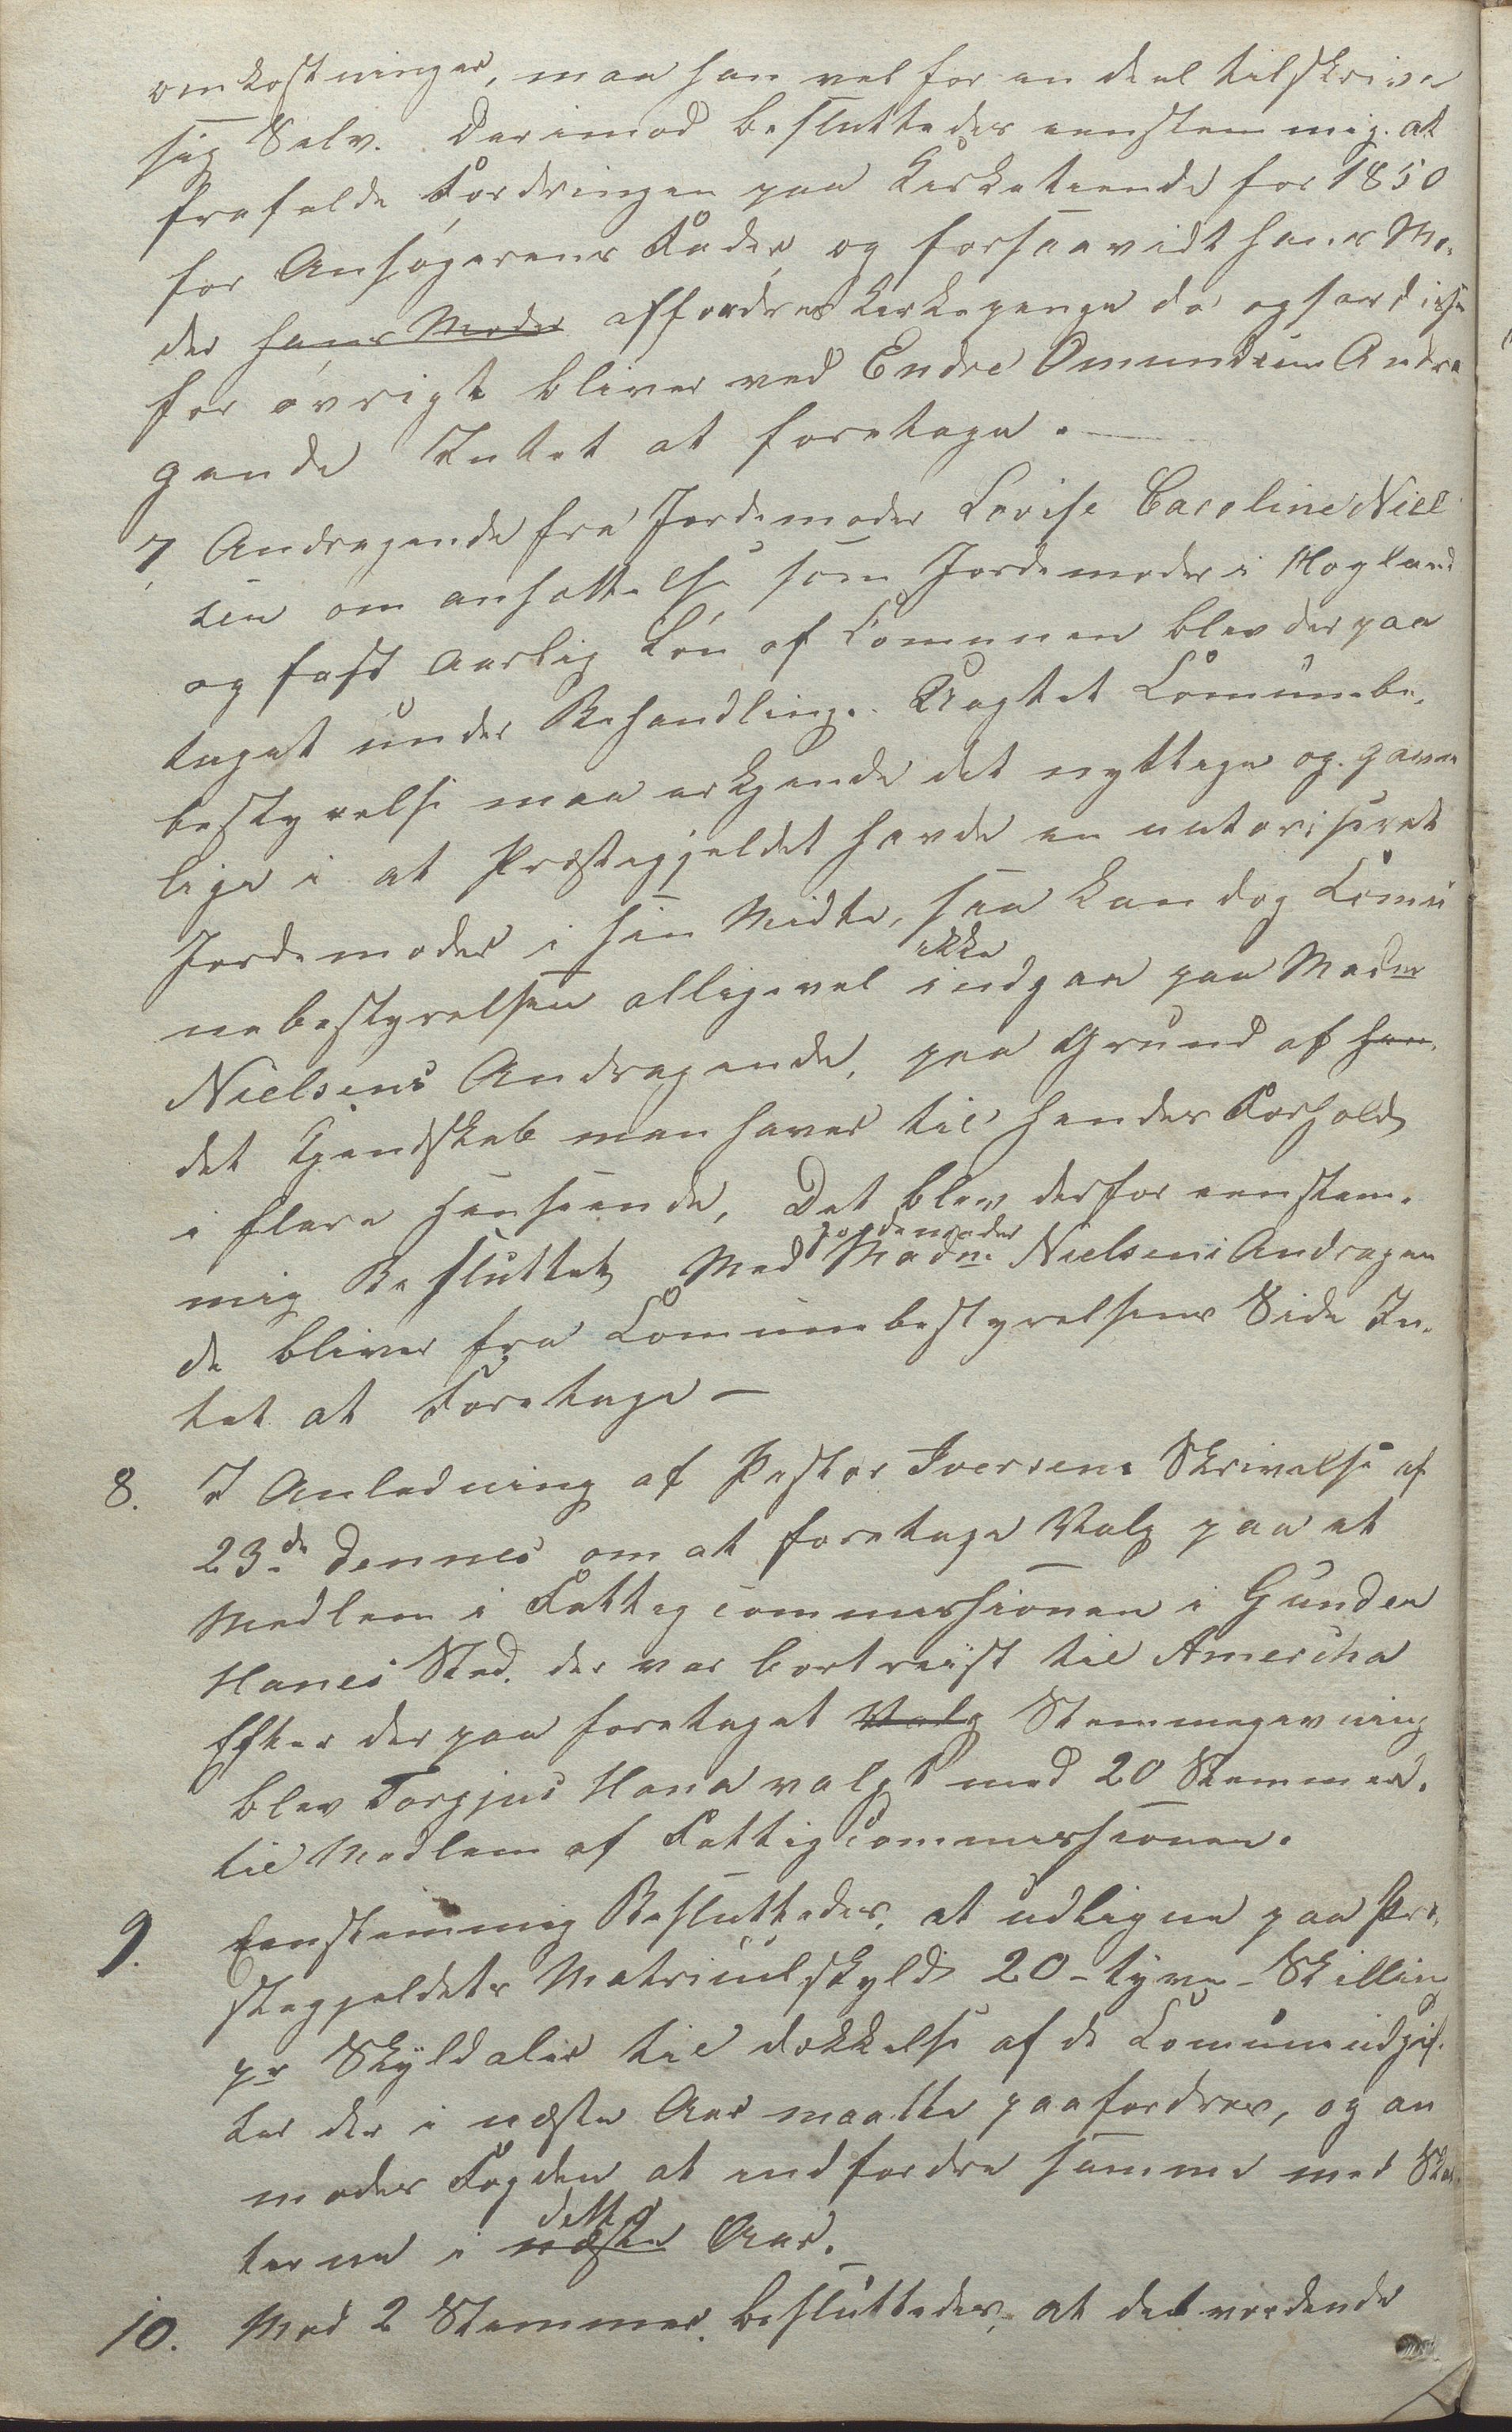 omkostninger, maa han vel for en deel tilskrive
sig Selv. Derimod besluttedes eenstemmig at
frafalde Fordringen paa Kirketiende for 1850
for Ansøgerens Fader og forsaavidt hans Mo-
der hans Moder affordres Kirkepenge da ogsaa disse
for øvrigt bliver ved Endre Omundsens Andra
gende Intet at foretage.
7 Andragende fra Jordemoder Lovise Caroline Niel
sen om ansættelse som Jordemoder i Høyland
og fast aarlig Løn af Comunen blev derpaa
taget under Behandling. Uagtet Comunebe-
bestyrelse maa erkjende det nyttige og gavn
lige i at Præstegjeldet havde en autoriseret
Jordemoder i sin Midte, saa kan dog Comu
nebestyrelsen alligevel ikke indgaa paa Madm
Nielsens Andragende, paa Grund af han
det Kjendskab man haver til hendes Forhold
i flere henseende, Det blev derfor eenstem-
mig Besluttet Med Jordemoder Madm. Nielsens Andragen
de bliver fra Comunebestyrelsens Side In-
tet at Foretage –
8. I Anledning af Pastor Iversens Skrivelse af
23de dennes om at foretage Valg paa et
Medlem i Fattigcommissionen i Gunder
Hanes Sted. der var bortreist til Amerika
Efter derpaa foretaget Valg Stemmegivning
blev Torgjus Hana valgt med 20 Stemmer.
til Medlem af Fattigcommissionen.
9. Eenstemmig Besluttedes, at udligne paa Præ-
stegjeldets Matriculskyld 20 – tyve – Skilling
pr Skylddaler til dækkelse af de Comuneudgif-
ter der i næste Aar maatte paafordres, og an
modes Fogden at indfordre samme med Skat-
terne i næste dette Aar.
10. Med 2 Stemmer besluttedes, at det vordende